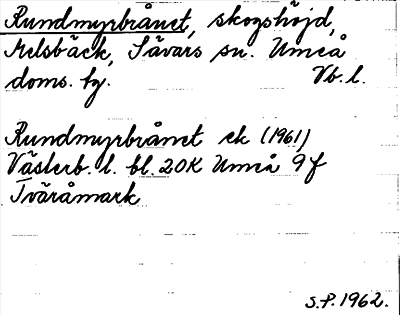 Rundmyrbrånet, skogshöjd,
Melsbäck, Sävars sn. Umeå
doms. hg. Vb. l.
Rundmyrbrånet ek (1961)
Västerb. l. bl. 20K Umeå 9f
Tväråmark
S.P. 1962.